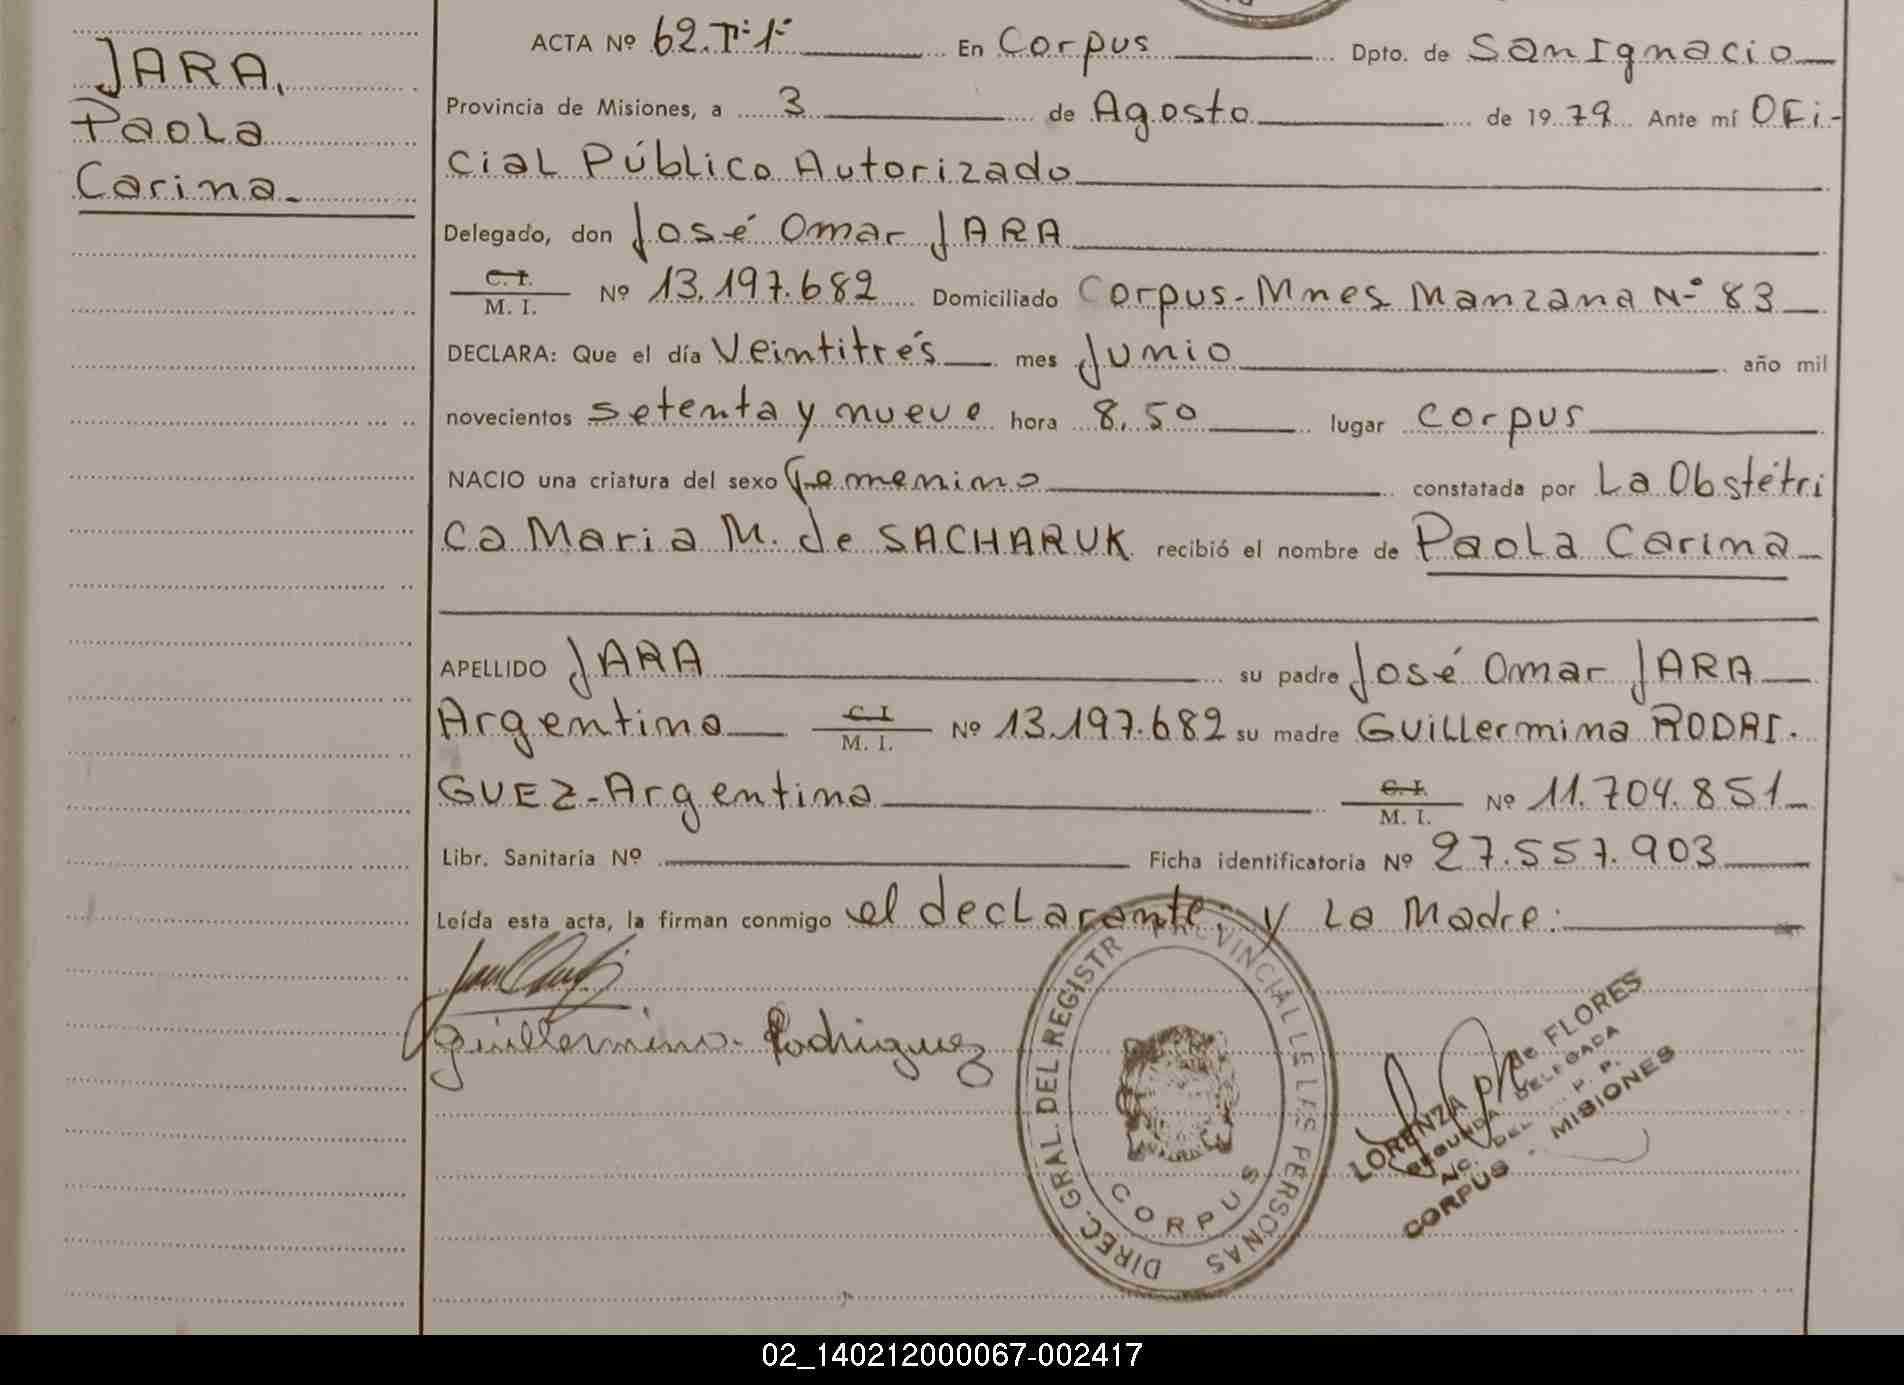 JARA,
Paola
Carina_
ACTA Nº 62.Tº.1º. En Corpus Dpto. de San Ignacio
Provincia de Misiones, a 3 de Agosto de 1979 Ante mí OFi-
cial Público Autorizado
Delegado, don José Omar JARA
C. I.
M. I. Nº 13.197.682 Domiciliado Corpus-Mnes Manzana Nº 83
DECLARA: Que el día Veintitrés mes Junio año mil
novecientos setenta y nueve hora 8,50 lugar Corpus
NACIO una criatura del sexo Femenino constatada por La Obstétri
ca Maria M. de SACHARUK recibió el nombre de Paola Carina
APELLIDO JARA su padre José Omar JARA
Argentino C. I.
M. I. Nº 13.197.682 su madre Guillermina RODRI-
GUEZ-Argentina C. I.
M. I. Nº 11.704.851
Libr. Sanitaria Nº Ficha identificatoria Nº 27.557.903
Leída esta acta, la firman conmigo el declarante y La Madre:
Guillermina Rodriguez
DIREC. GRAL. DEL REGISTR PROVINCIAL DE LAS PERSONAS
CORPUS
LORENZA de FLORES
SEGUNDA DELEGADA
DEL R. P.
CORPUS - MISIONES
02_140212000067-002417